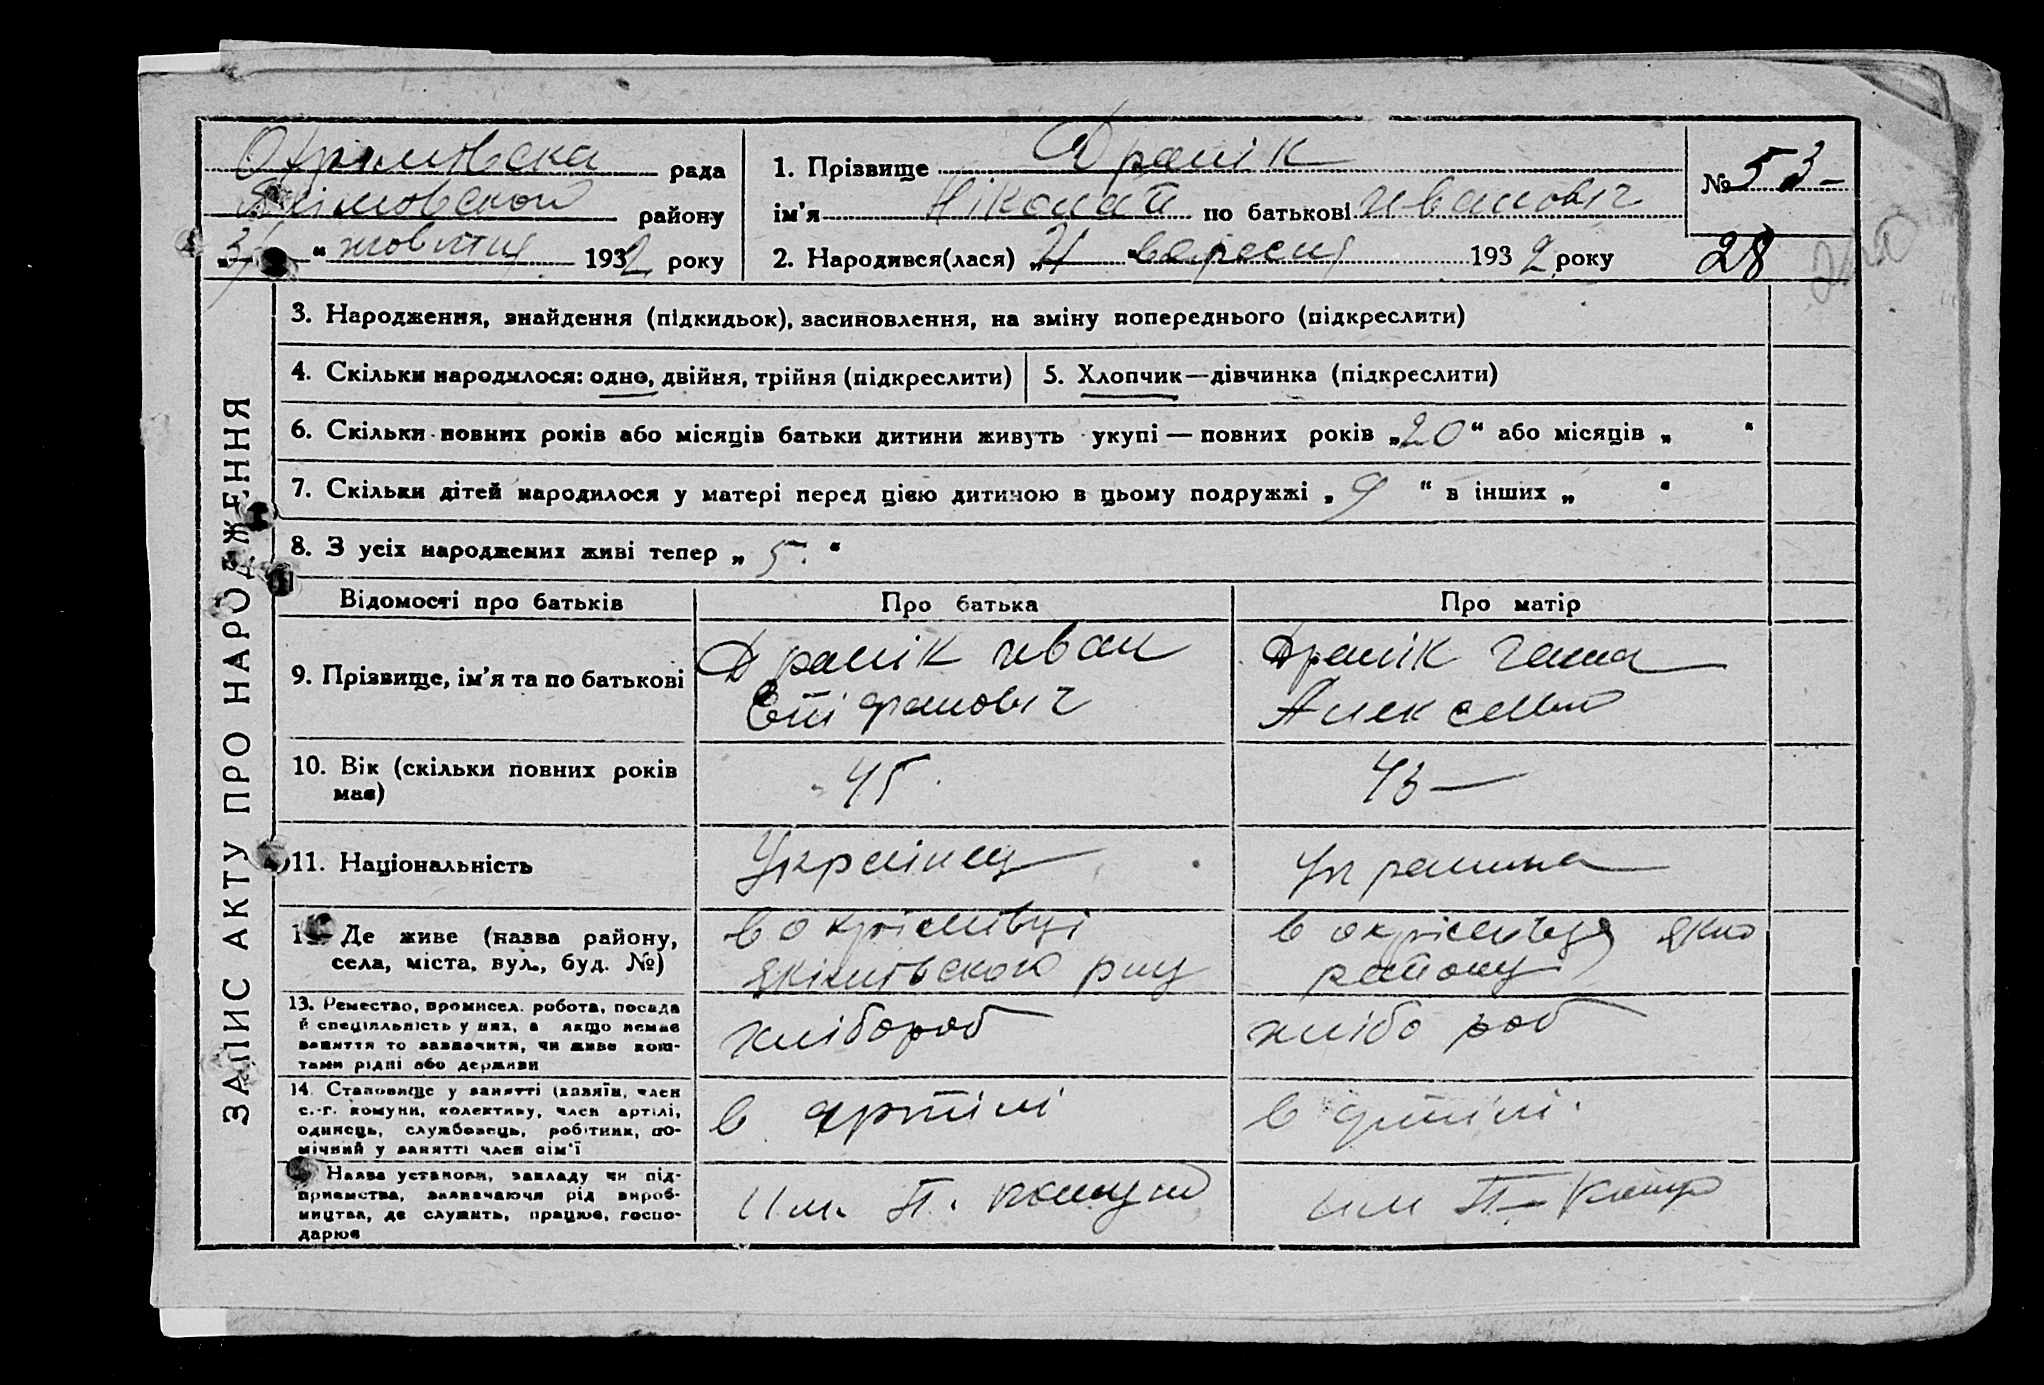 Охрімовска рада
Якімовской району
" " жовтня 1932 року
1. Прізвище Драпік
ім'я Ніколай по батькові Иванович
2. Народився(лася) „21 вересня 1932 року
№ 53-
28
ЗАПИС АКТУ ПРО НАРОДЖЕННЯ
3. Народження, знайдення (підкидьок), засиновлення, на зміну попереднього (підкреслити)
4. Скільки народилося: одно, двійня, трійня (підкреслити)
5. Хлопчик—дівчинка (підкреслити)
6. Скільки повних років або місяців батьки дитини живуть укупі — повних років „20“ або місяців „ “
7. Скільки дітей народилося у матері перед цією дитиною в цьому подружжі „9“ в інших „ “
8. З усіх народжених живі тепер „5.“
Відомості про батьків Про батька Про матір
9. Прізвище, ім'я та по батькові
Драпік иван
Епіфанович
Драпік ганна
Алексевна
10. Вік (скільки повних років має)
45
43—
11. Національність
Українец
Украинка
12. Де живе (назва району,
села, міста, вул., буд. №)
в охрімівці
якімівського р-ну
в охрімівця якио
району
13. Ремество, промисел. робота, посада
й спеціяльність у них, а якщо немає
заняття то зазначити, чи живе кош-
тами рідні або держави
хлібороб
хлібо роб
14. Становище у занятті (хазяїн, член
с.-г. комуни, колективу, член артілі,
одинець, службовець, робітник, по-
мічний у занятті член сім'ї
в артілі
в артілі.
Назва установи, закладу чи під-
приємства, зазначаючи рід вироб-
ництва, де служить, працює, госпо-
дарює
Им. П. комуни
им П-Комун